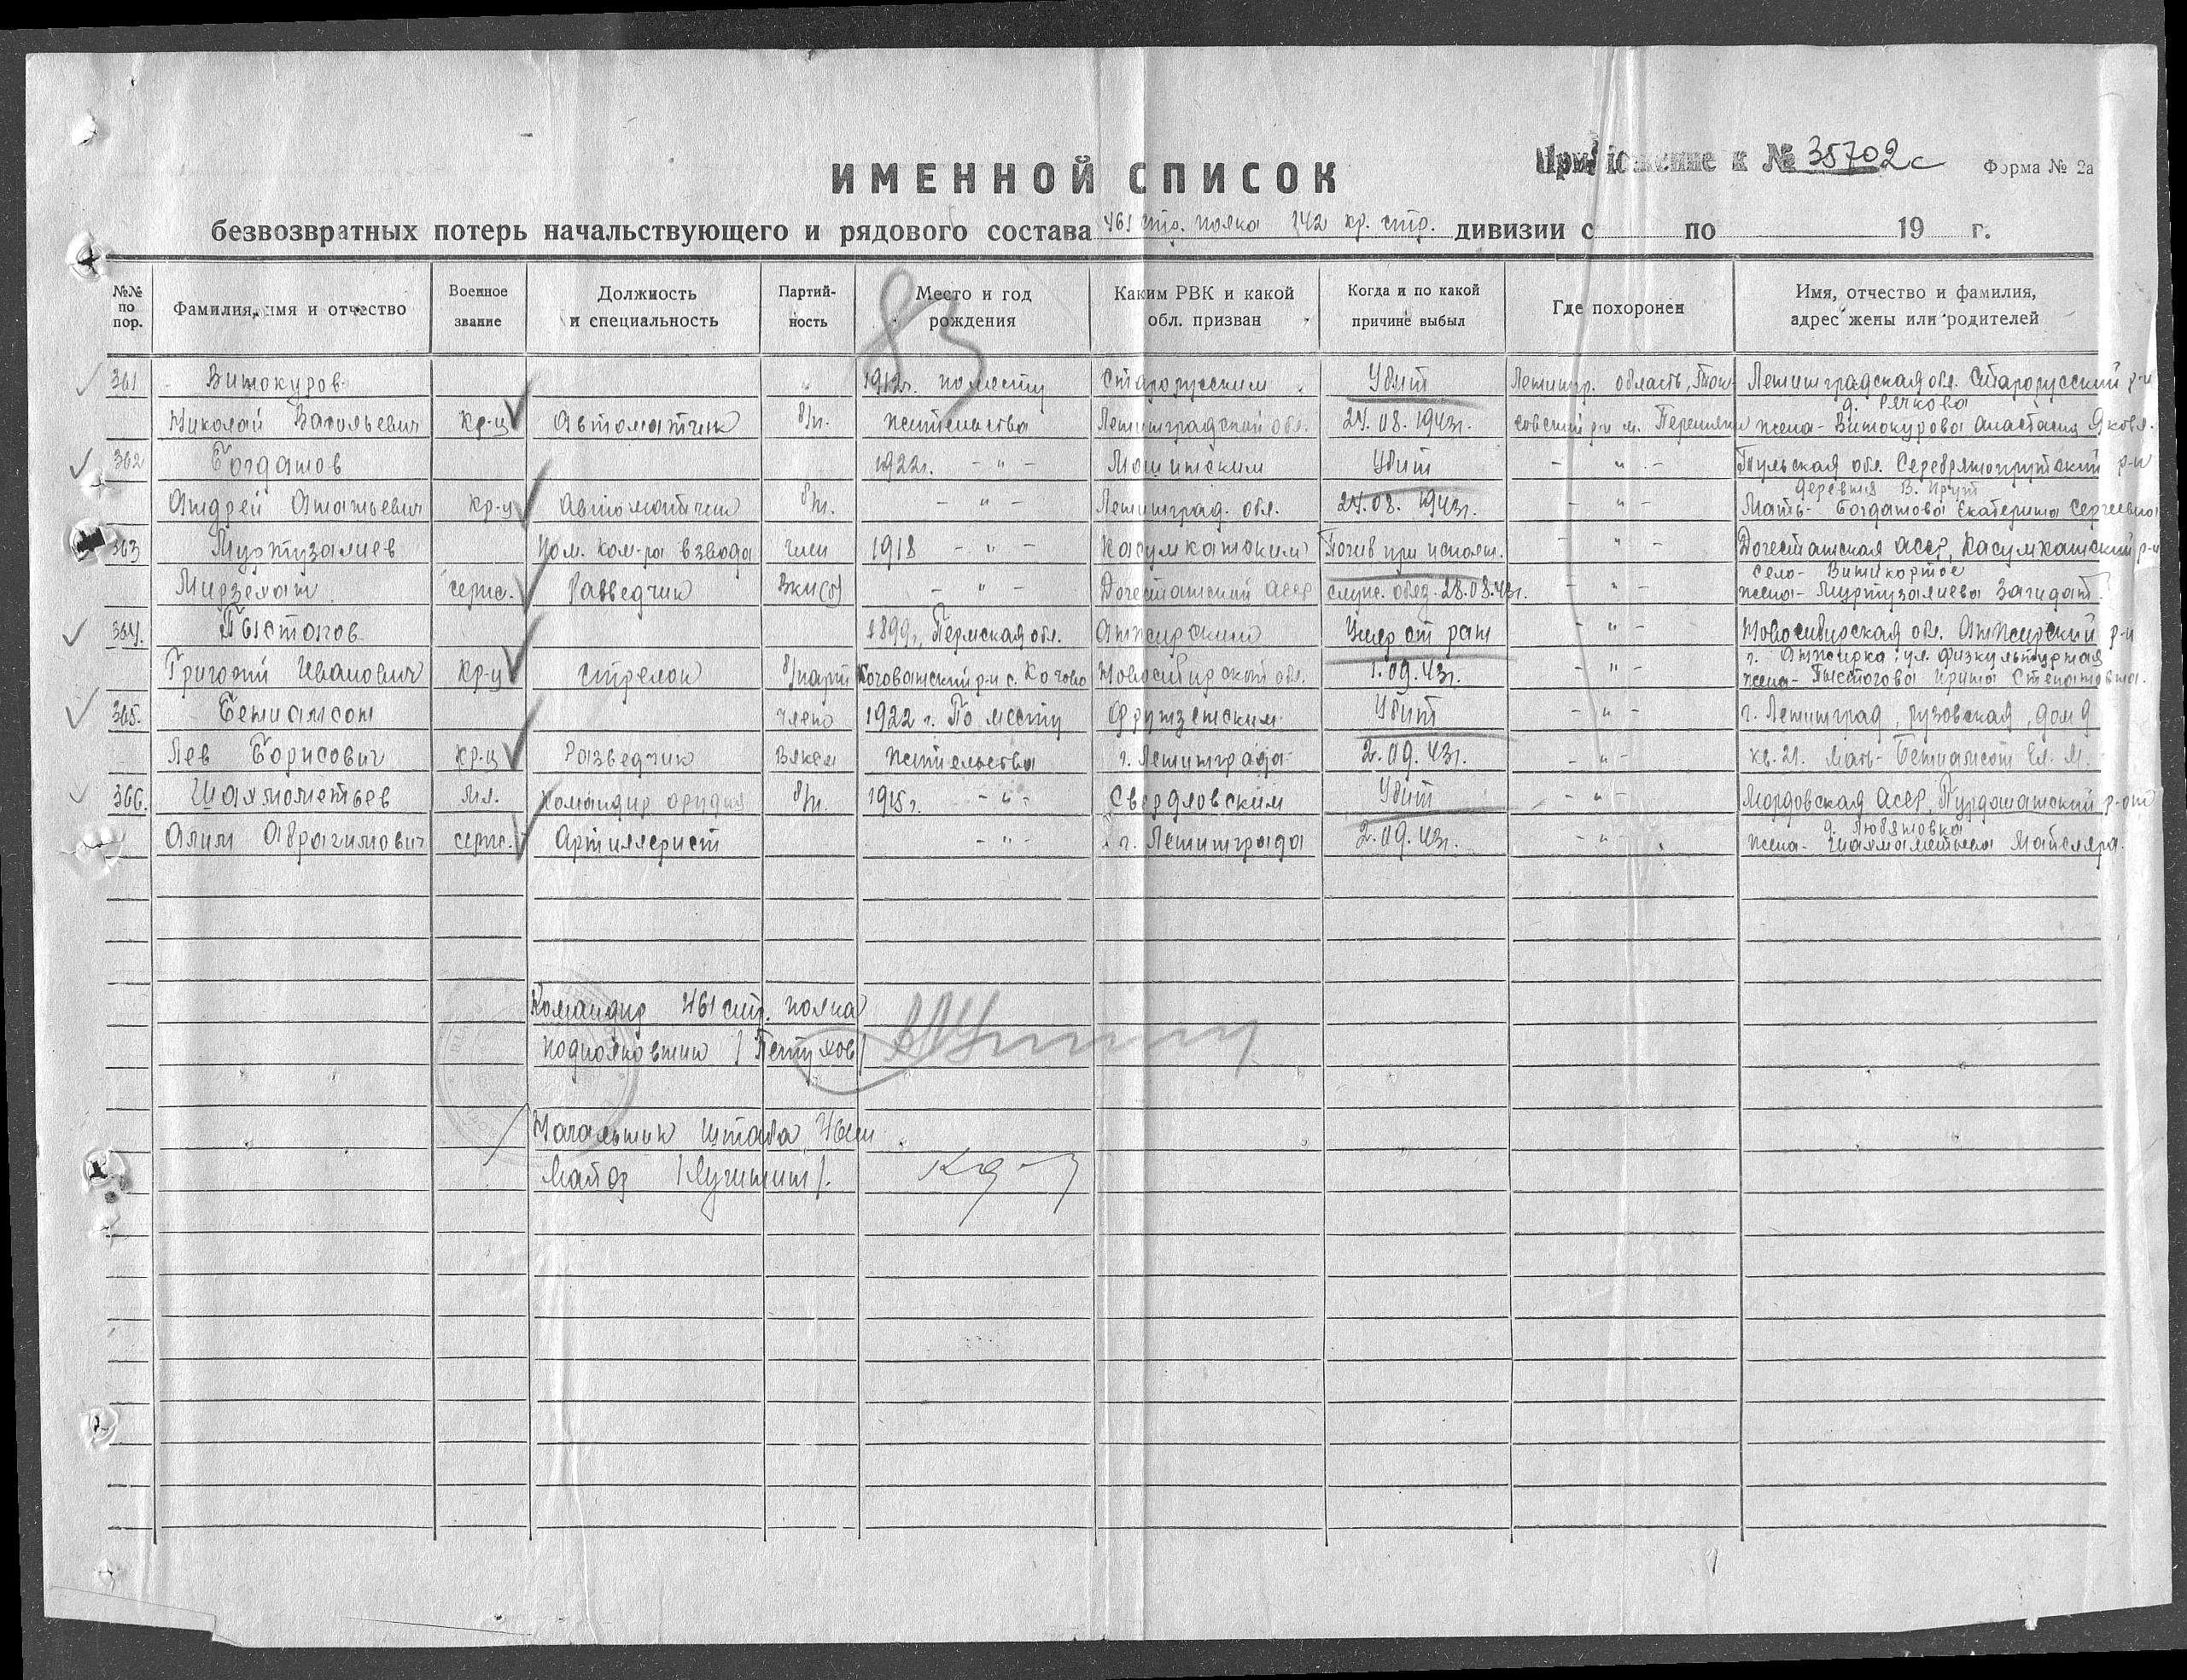 ИМЕННОЙ СПИСОК
Приложение к № 35702с Форма № 2а
безвозвратных потерь начальствующего и рядового состава 461 стр. полка 142 кр. стр. дивизии с по 19 г.
№№ по пор. Фамилия, имя и отчество Военное звание Должность и специальность Партийность Место и год рождения Каким РВК и какой обл. призван Когда и по какой причине выбыл Где похоронен Имя, отчество и фамилия, адрес жены или родителей
83
361 Винокуров 1912г. по месту Старорусским Убит Ленингр. область, Тос Ленинградская обл. Старорусский р-н
д. Речкова
Николай Васильевич кр-ц Автоматчик б/п. жительства Ленинградской обл. 24.08.1943г. жена - Винокурова Анастасия Яковл.
362 Богданов 1922г. - " - Убит - " - Тульская обл. Серебрянопрудский р-н
деревня В. Пруд
Андрей Ананьевич кр-ц Автоматчик б/п. - " - Ленинград. обл. 24.08.1943г. - " - Мать - Богданова Екатерина Сергеевна
363 Муртузалиев Пом. ком-ра взвода член 1918 - " - Касумкентским Погиб при исполн. - " - Дагестанская АССР, Касумкентский р-н
Село -
сержа. Разведчик ВКП(б) - " - Дагестанской АССР служ. обяз. 28.08.43г. - " - жена - Муртузалиева Загидат
364. Пыстогов 1899г. Пермская обл. Анжерским Умер от ран - " - Новосибирская обл. Анжерский р-н
г. Анжерка, ул. Физкультурная
Григорий Иванович кр-ц стрелок б/парт Кочевский р-н с. Кочево Новосибирской обл. 1.09.43г. - " - жена - Пыстогова Ирина Степановна.
365. Бениамсон член 1922 г. По месту Фрунзенским Убит - " - г. Ленинград, Рузовская, дом 9
Лев Борисович кр-ц Разведчик ВЛКСМ жительства г. Ленинграда 2.09.43г. - " - кв. 21. Мать - Бениамсон Ел. М.
366. Шаямометьев мл. командир орудия б/п. 1915г. - " - Свердловским Убит - " - Мордовская АССР,
Алим Абрагимович сержа. Артиллерист - " - г. Ленинграда 2.09.43г. - " - жена -
Командир 461 стр. полка
подполковник / Петухов /
Начальник штаба 461сп
Майор / Лучинин /.